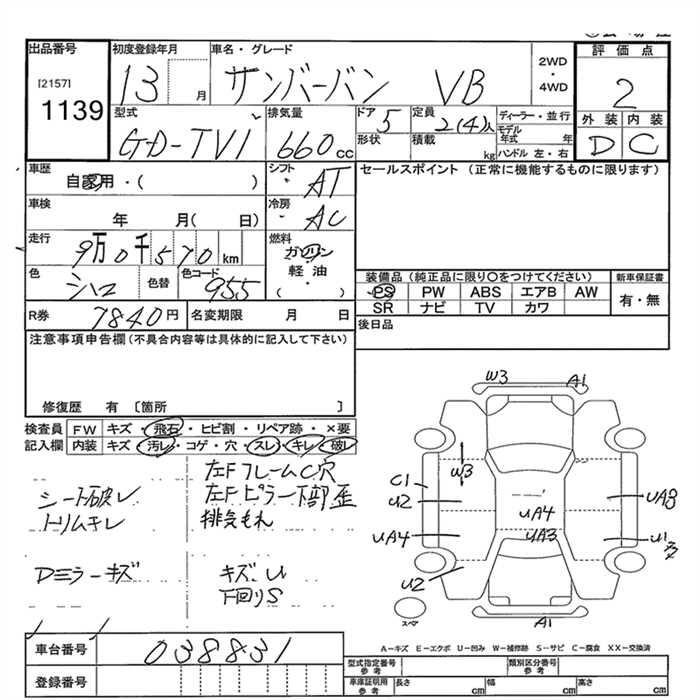 出品番号 初度登録年月 車名・グレード 2WD・4WD 評価点
[2157] 1139 13 月 サンバーバン VB 2
型式 排気量 ドア 定員 ディーラー・並行 外装 内装
GD-TV1 660cc 5 2(4)人 モデル年式 年 D C
形状 積載 kg ハンドル 左・右
車歴 シフト セールスポイント (正常に機能するものに限ります)
自家用・( ) AT
車検 冷房
年 月( 日) AC
走行 燃料
9万0千570km ガソリン
色 色替 色コード 軽油・
シロ 955 ( )
装備品 (純正品に限り○をつけてください) 新車保証書
PS PW ABS エアB AW 有・無
SR ナビ TV カワ
R券 7840円 名変期限 月 日 後日品
注意事項申告欄(不具合内容等は具体的に記入して下さい)
修復歴 有 〔箇所 〕
検査員 FW キズ・飛石・ヒビ割・リペア跡・×要
記入欄 内装 キズ・汚レ・コゲ・穴・スレ・キレ・破レ
左FフレームC穴
シート破レ 左Fピラー下部歪
トリムキレ 排気もれ
Dミラーキズ キズ、U
下回りS
W3 A1
W3
C1
U2 UA3
UA4
UA4 UA3 U1
U2
スペア A1
A-キズ E-エクボ U-凹み W-補修跡 S-サビ C-腐食 XX-交換済
車台番号 038831
登録番号
型式指定番号 参考 類別区分番号 参考
車庫証明用 参考 長さ cm 幅 cm 高さ cm